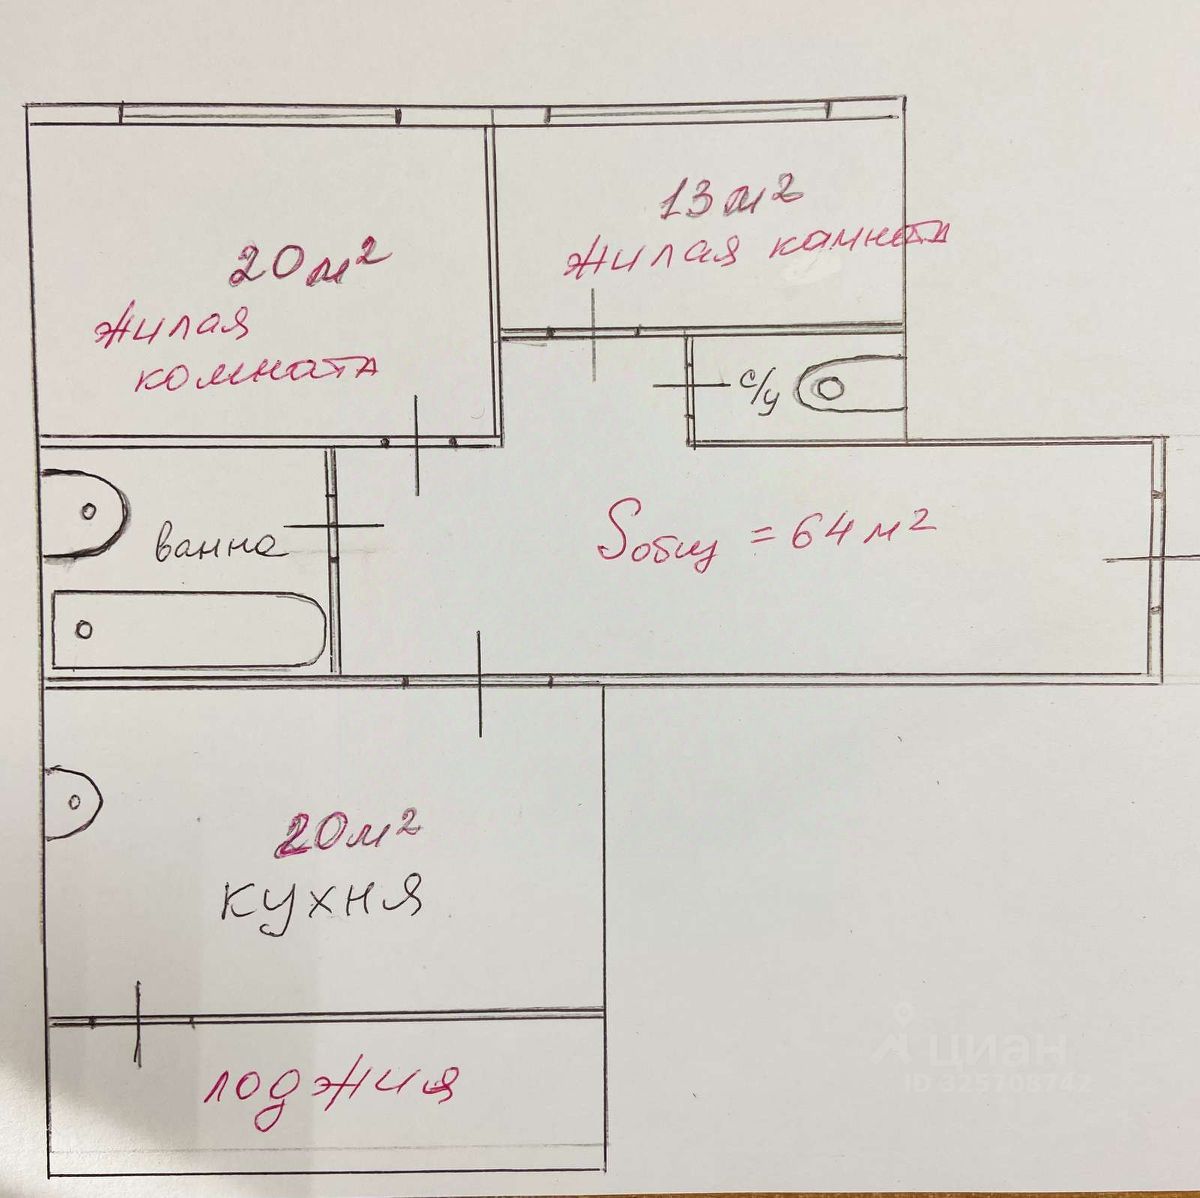 20м²
жилая
комната
13м²
жилая камната
с/у
ванна
Sобщ = 64 м²
20м²
кухня
лоджия
циан
ID 32570874